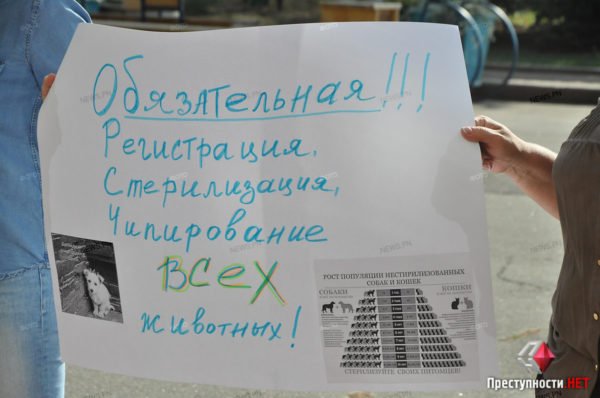 Обязательная!!!
Регистрация,
Стерилизация,
Чипирование
ВСЕХ
животных!
РОСТ ПОПУЛЯЦИИ НЕСТИРИЛИЗОВАННЫХ
СОБАК И КОШЕК
СОБАКИ
КОШКИ
СТЕРИЛИЗУЙТЕ СВОИХ ПИТОМЦЕВ!
Преступности.НЕТ
NEWS.PN